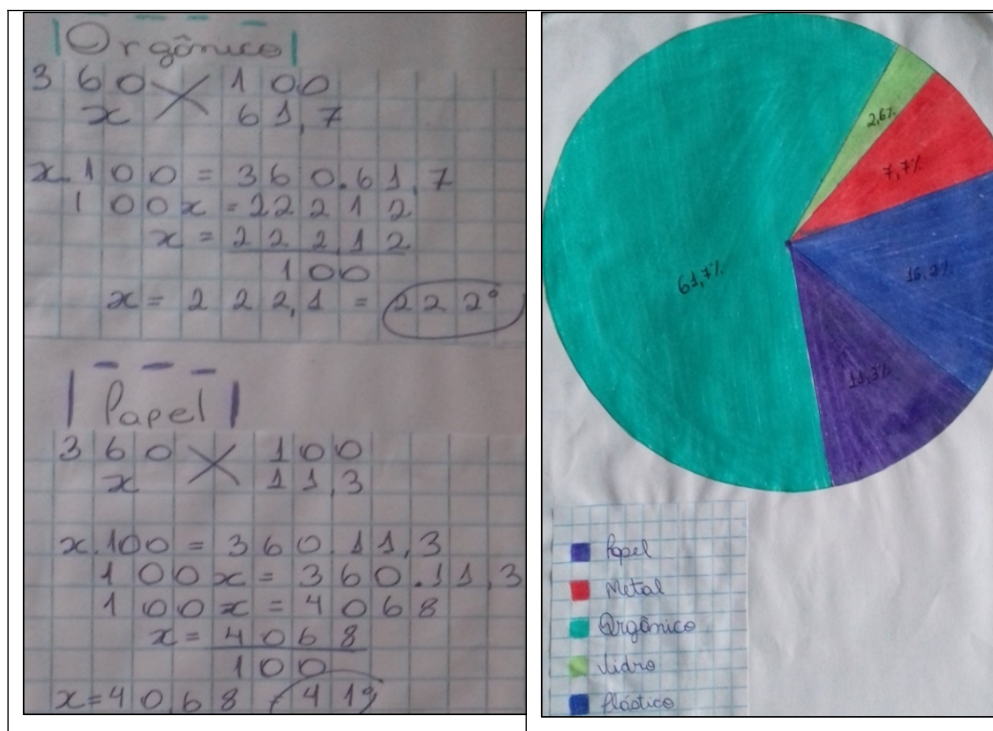 Orgânico
360 100
x 61,7
x.100 = 360.61,7
100x = 22212
x = 22212
100
x = 222,1 = 222°
Papel
360 100
x 11,3
x.100 = 360.11,3
100x = 360.11,3
100x = 4068
x = 4068
100
x = 40,68 41°
2,6%
7,7%
61,7%
16,7%
11,3%
Papel
Metal
Orgânico
Vidro
Plástico